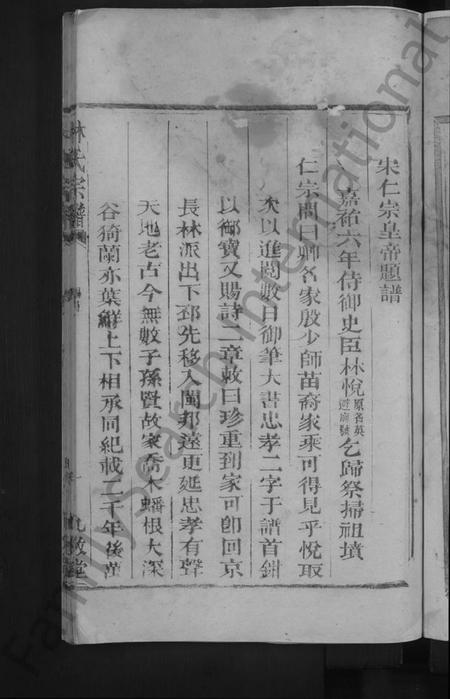 宋仁宗皇帝題譜
嘉祐六年侍御史臣林悅原名英避廟號乞歸祭掃祖墳
仁宗問曰卿名家殷少師苗裔家乘可得見乎悅取
次以進閱數日御筆大書忠孝二字于譜首鈐
以御寶又賜詩二章敕曰珍重到家可卽回京
長林派出下邳先移入閩邦遠更延忠孝有聲
天地老古今無數子孫賢故家喬木蟠根大深
谷猗蘭亦葉鮮上下相承同紀載二千年後萬
林氏宗譜
九牧堂
FamilySearch International